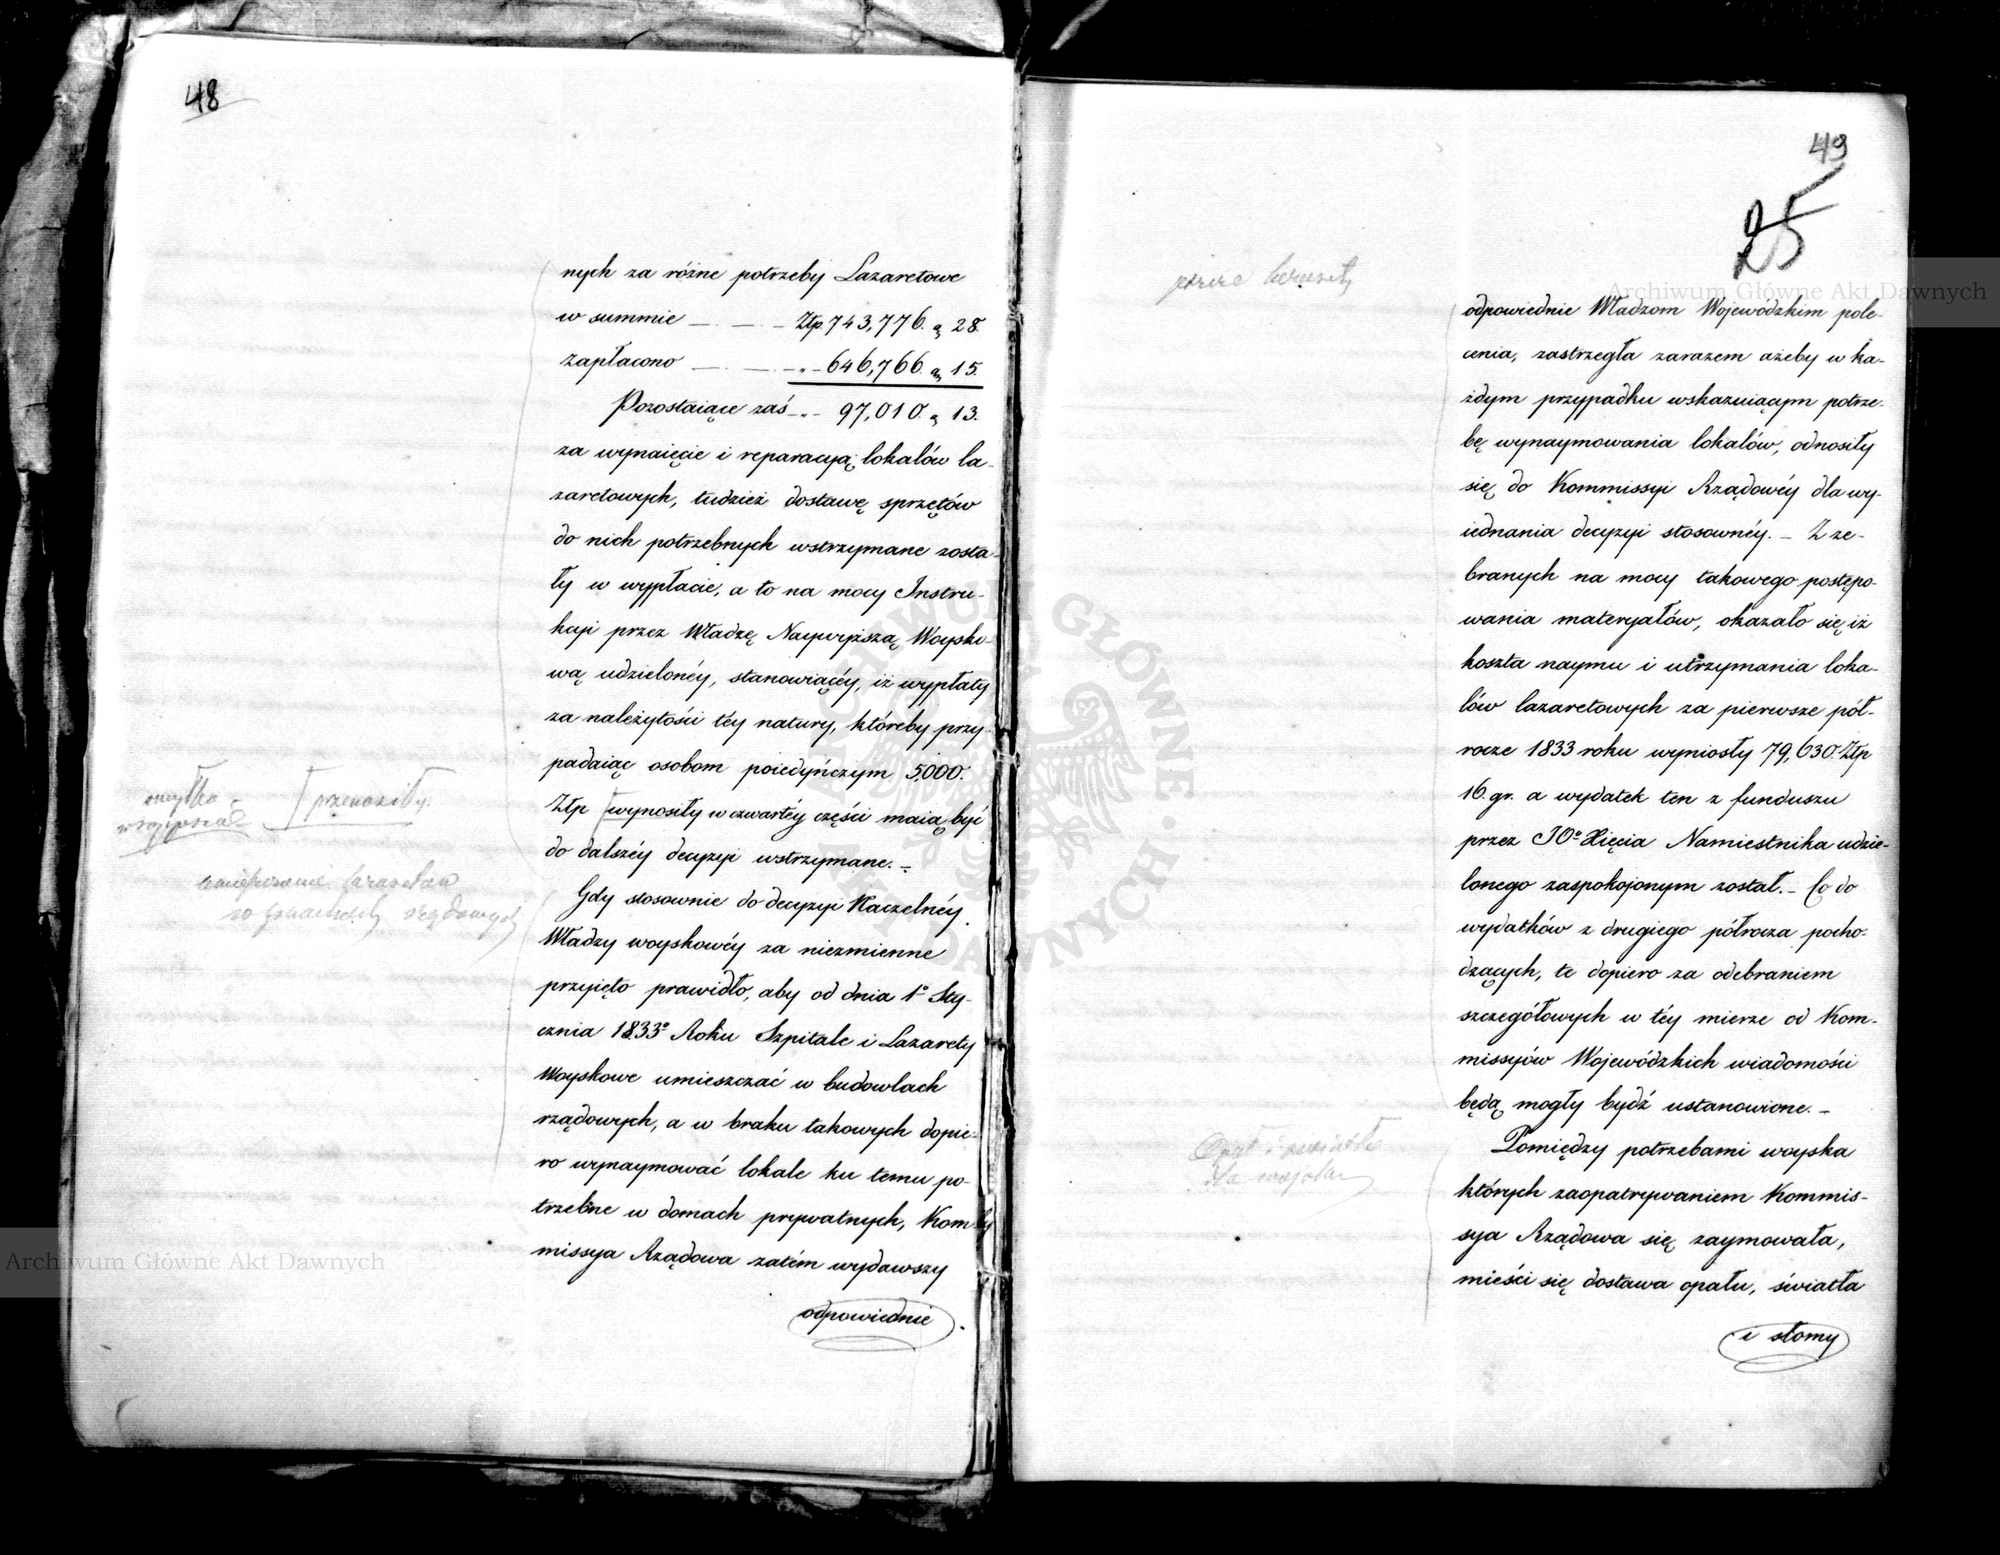 48
nych za różne potrzeby Lazaretowe
w summie — . — . — Złp. 743,776. g. 28.
zapłacono — . — . — „ — 646,766. g. 15.
Pozostaiące zaś — „ — 97,010. g. 13.
za wynaięcie i reparacyą lokalów la-
zaretowych, tudzież dostawę sprzętów
do nich potrzebnych wstrzymane zosta-
ły w wypłacie, a to na mocy Instru-
kcyi przez Władzę Naywyższą Woysko-
wą udzielonéy, stanowiącéy, iż wypłaty
za należytości téy natury, któreby przy-
padaiąc osobom poiedyńczym 5,000.
Złp wynosiły w czwartéy części maią być
do dalszéy decyzyi wstrzymane. —
omyłka
przenosiły.
Gdy stosownie do decyzyi Naczelnéy
Władzy woyskowéy za niezmienne
przyięto prawidło, aby od dnia 1º Sty-
cznia 1833º Roku Szpitale i Lazarety
Woyskowe umieszczać w budowlach
rządowych, a w braku takowych dopie-
ro wynaymować lokale ku temu po-
trzebne w domach prywatnych, Kom-
missya Rządowa zatém wydawszy
odpowiednie
49
25
odpowiednie Władzom Wojewódzkim pole-
cenia, zastrzegła zarazem ażeby w ka-
żdym przypadku wskazuiącym potrze-
bę wynaymowania lokalów, odnosiły
się do Kommissyi Rządowéy dla wy-
iednania decyzyi stosownéy. — Z ze-
branych na mocy takowego postępo-
wania materyałów, okazało się iż
koszta naymu i utrzymania loka-
lów lazaretowych za pierwsze pół-
rocze 1833 roku wyniosły 79,630. Złp
16. gr. a wydatek ten z funduszu
przez JOº Xięcia Namiestnika udzie-
lonego zaspokojonym został. — Co do
wydatków z drugiego półrocza pocho-
dzących, te dopiero za odebraniem
szczegółowych w téy mierze od Kom-
missyów Wojewódzkich wiadomości
będą mogły bydź ustanowione. —
Opał i światło
dla wojska
Pomiędzy potrzebami woyska
których zaopatrywaniem Kommis-
sya Rządowa się zaymowała,
mieści się dostawa opału, światła
i słomy
Archiwum Główne Akt Dawnych
Archiwum Główne Akt Dawnych
ARCHIWUM GŁÓWNE AKT DAWNYCH